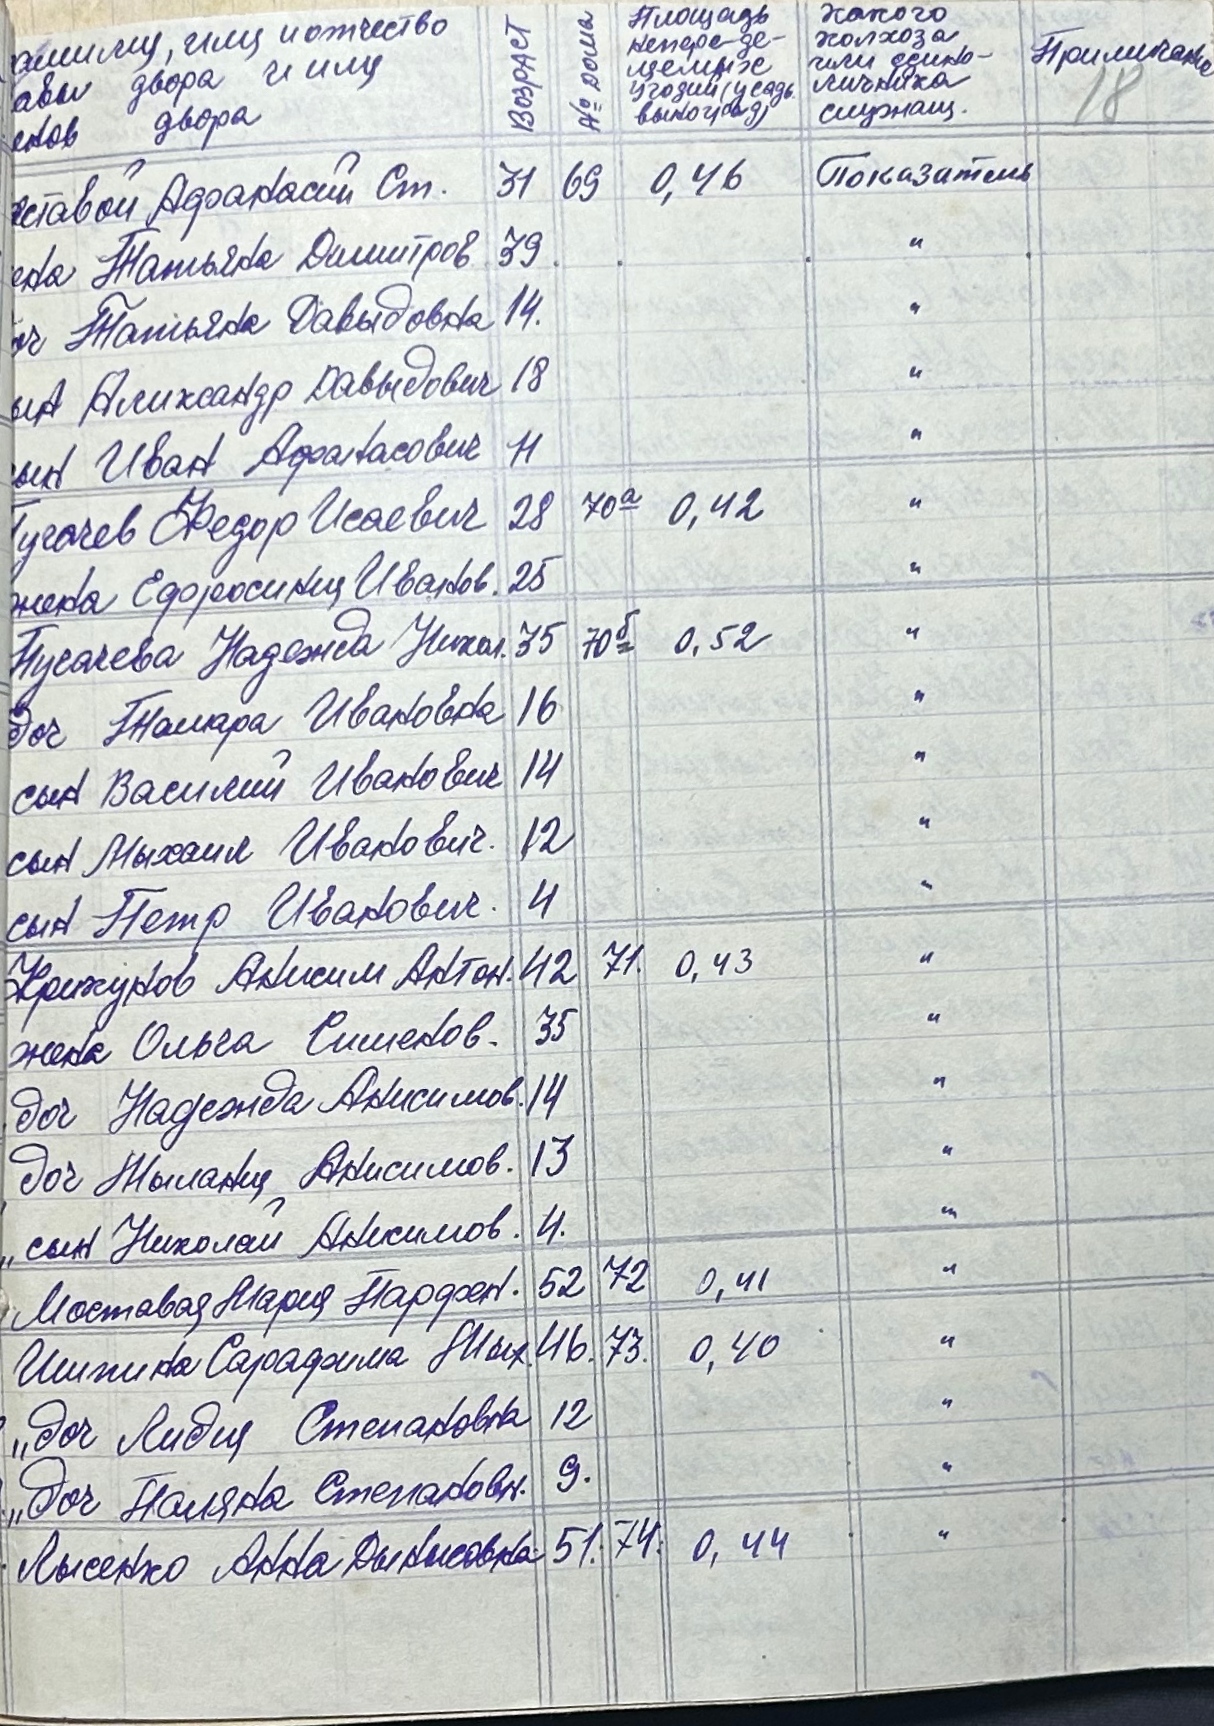 амилиц, имц и отчество
авы двора и имц
енов двора
Возраст
№ дома
Площадь
непере де-
лемых
угодий (усадь.
виноград)
какого
колхоза
или едино-
личника
служащ.
Примечани
18
ставой Афанасий Ст. 31 69 0,46 Показатель
ена Татьяна Димитров 39 "
оч Татьяна Давыдовна 14. "
ын Алихсандр Давыдович 18 "
сын Иван Афанасович 11 "
Пугачев Федор Исаевич 28 70а 0,42 "
жена Ефросинц Иванов. 25 "
Пугачева Надежда Никол. 35 70б 0,52 "
доч Тамара Ивановна 16 "
сын Василий Иванович 14 "
сын Мыхаил Иванович. 12 "
сын Петр Иванович. 4 "
Крижунов Анисим Антон. 42 71. 0,43 "
жена Ольга Сименов. 35 "
доч Надежда Анисимов. 14 "
доч Мыланц Анисимов. 13 "
" сын Николай Анисимов. 4. "
Моставац Мариц Парфен. 52 72 0,41 "
Шишкина Сарафима Мых. 46. 73. 0,40 "
" доч Лидиц Степановна 12 "
" доч Поляна Степановн. 9. "
Лысенко Анна Дынысовна 51. 74. 0,44 "